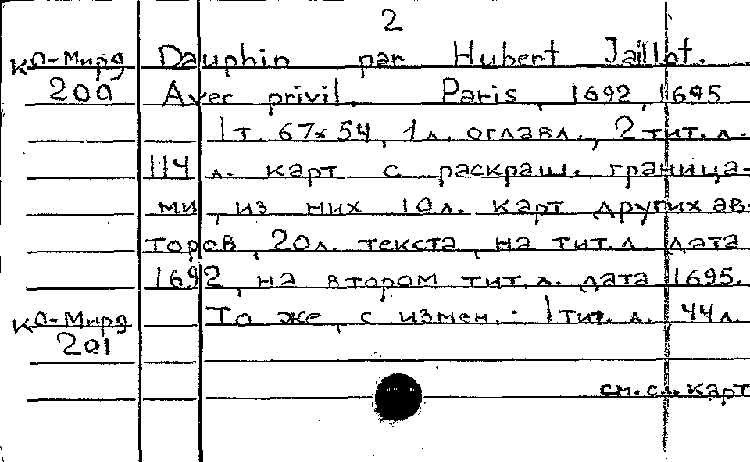 2
КО-Мирд Dauphin par Hubert Jaillot.
200 Avec privil. Paris, 1692, 1695
1 т. 67×54, 1 л. оглавл., 2 тит. л.
114 л. карт с раскраш. граница-
ми, из них 10 л. карт других ав-
торов, 20 л. текста, на тит. л. дата
1692, на втором тит. л. дата 1695.
КО-Мирд То же, с измен.: 1 тит. л., 44 л.
201
см. сл. карт